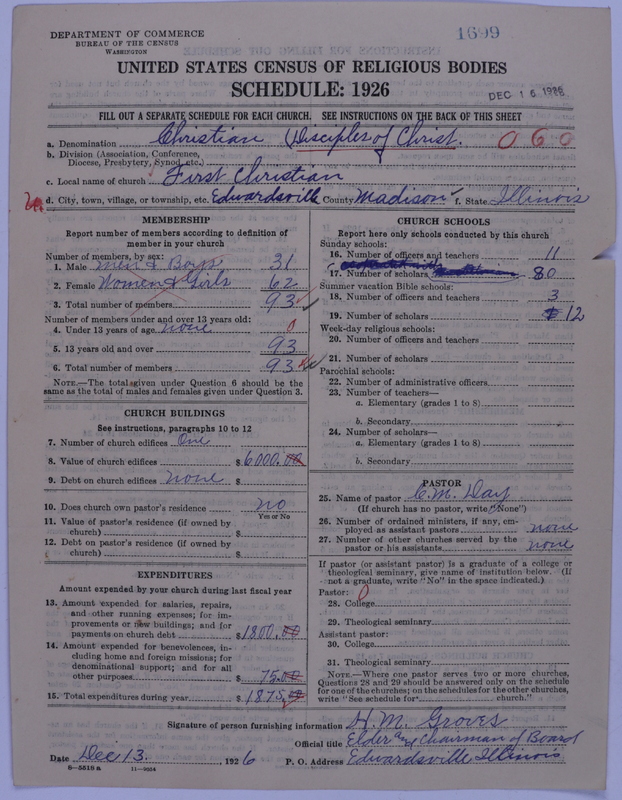 DEPARTMENT OF COMMERCE
BUREAU OF THE CENSUS
WASHINGTON
1699
UNITED STATES CENSUS OF RELIGIOUS BODIES
SCHEDULE: 1926
DEC 16 1926
FILL OUT A SEPARATE SCHEDULE FOR EACH CHURCH. SEE INSTRUCTIONS ON THE BACK OF THIS SHEET
a. Denomination Christian (Disciples of Christ. 060
b. Division (Association, Conference, Diocese, Presbytery, Synod, etc.)
c. Local name of church First Christian
d. City, town, village, or township, etc. Edwardsville County Madison f. State Illinois
MEMBERSHIP
Report number of members according to definition of member in your church
Number of members, by sex:
1. Male Men & Boys 31
2. Female Women & Girls 62
3. Total number of members 93
Number of members under and over 13 years old:
4. Under 13 years of age none 0
5. 13 years old and over 93
6. Total number of members 93
NOTE.—The total given under Question 6 should be the same as the total of males and females given under Question 3.
CHURCH BUILDINGS
See instructions, paragraphs 10 to 12
7. Number of church edifices One
8. Value of church edifices $6000.00
9. Debt on church edifices none $
10. Does church own pastor's residence no
Yes or No
11. Value of pastor's residence (if owned by church) $
12. Debt on pastor's residence (if owned by church) $
EXPENDITURES
Amount expended by your church during last fiscal year
13. Amount expended for salaries, repairs, and other running expenses; for improvements or new buildings; and for payments on church debt $1800.00
14. Amount expended for benevolences, including home and foreign missions; for denominational support; and for all other purposes $ 75.00
15. Total expenditures during year $1875.00
CHURCH SCHOOLS
Report here only schools conducted by this church
Sunday schools:
16. Number of officers and teachers 11
17. Number of scholars 80
Summer vacation Bible schools:
18. Number of officers and teachers 3
19. Number of scholars 12
Week-day religious schools:
20. Number of officers and teachers
21. Number of scholars
Parochial schools:
22. Number of administrative officers
23. Number of teachers—
a. Elementary (grades 1 to 8)
b. Secondary
24. Number of scholars—
a. Elementary (grades 1 to 8)
b. Secondary
PASTOR
25. Name of pastor C. M. Day
(If church has no pastor, write "None")
26. Number of ordained ministers, if any, employed as assistant pastors none
27. Number of other churches served by the pastor or his assistants none
If pastor (or assistant pastor) is a graduate of a college or theological seminary, give name of institution below. (If not a graduate, write "No" in the space indicated.)
Pastor: 0
28. College
29. Theological seminary
Assistant pastor:
30. College
31. Theological seminary
NOTE.—Where one pastor serves two or more churches, Questions 28 and 29 should be answered only on the schedule for one of the churches; on the schedules for the other churches, write "See schedule for church."
Signature of person furnishing information H. M. Groves
Official title Elder and Chairman of Board
Date Dec 13, 1926 P. O. Address Edwardsville Illinois
8—5518 a 11—9024